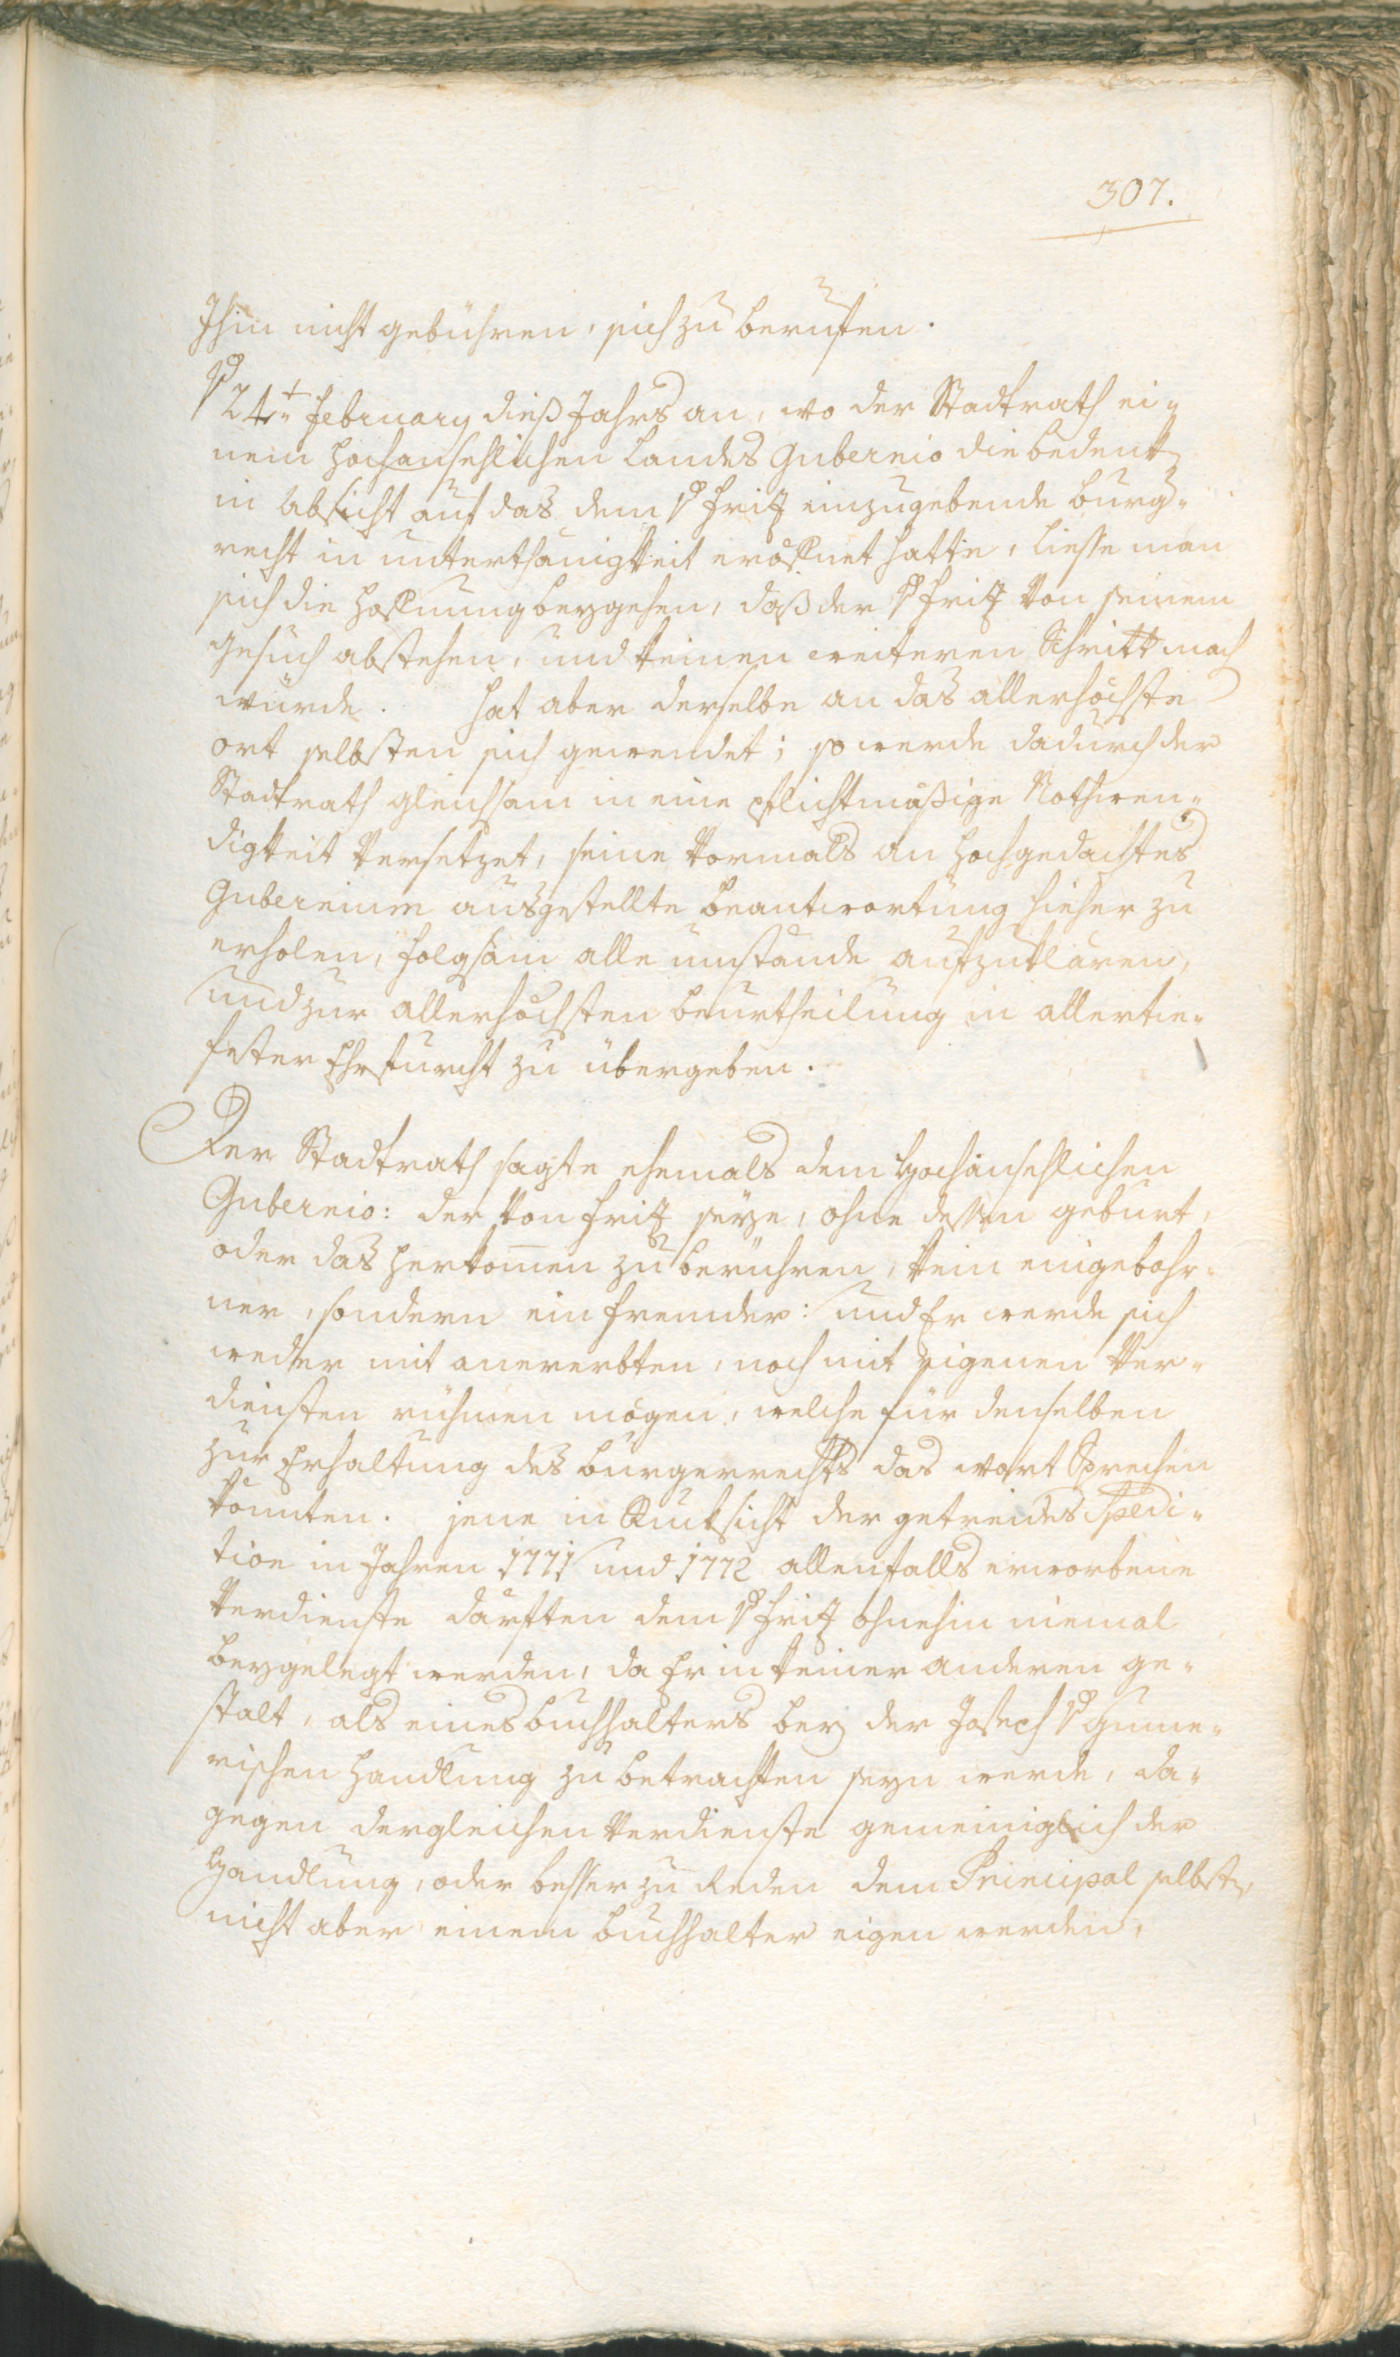 307.
Ihm nicht gebühren, sich zu berufen.
V 24t: February dieß Jahrs an, wo der Stadtrath ei-
nem hochansehlichen Landes Gubernio die bedenk
in Absicht auf das dem v Friz einzugebende burg-
recht in unterthänigkeit eröffnet hatte, liesse man
sich die Hoffnung beygehen, daß der v Friz von seinem
gesuch abstehen, und keinen weiteren Schritt mach
würde. hat aber derselbe an das allerhöchste
ort selbsten sich gewendet; so werde dadurch der
Stadtrath gleichsam in eine pflichtmäßige Nothwen-
digkeit versetzet, seine vormals an hochgedachtes
Gubernium ausgestellte beantwortung hieher zu
erholen, folgsam alle umstände aufzuklären,
und zur allerhöchsten beurtheilung in allertie-
fester Ehrfurcht zu übergeben.
Der Stadtrath sagte ehemals dem Hochansehlichen
Gubernio: der von Friz seye, ohne dessen geburt,
oder das herkom̅en zu berühren, kein eingebohr-
ner, sondern ein fremder: und Er werde sich
weder mit anererbten, noch mit eigenen Ver-
diensten rühmen mögen, welche für denselben
zur Erhaltung des bürgerrechts das wort Sprechen
könnten. jene in Rucksicht der getreides Spedi-
tion in Jahren 1771 und 1772 allenfalls erworbene
Verdienste därften dem v Friz ohnehin niemal
beygelegt werden, da Er in keiner anderen ge-
stalt, als eines buchhalters bey der Joseph v Gume-
rischen Handlung zu betrachten seyn werde, da-
gegen dergleichen Verdienste gemeiniglich der
Handlung, oder besser zu Reden dem Principal selbst,
nicht aber einem buchhalter eigen werden,